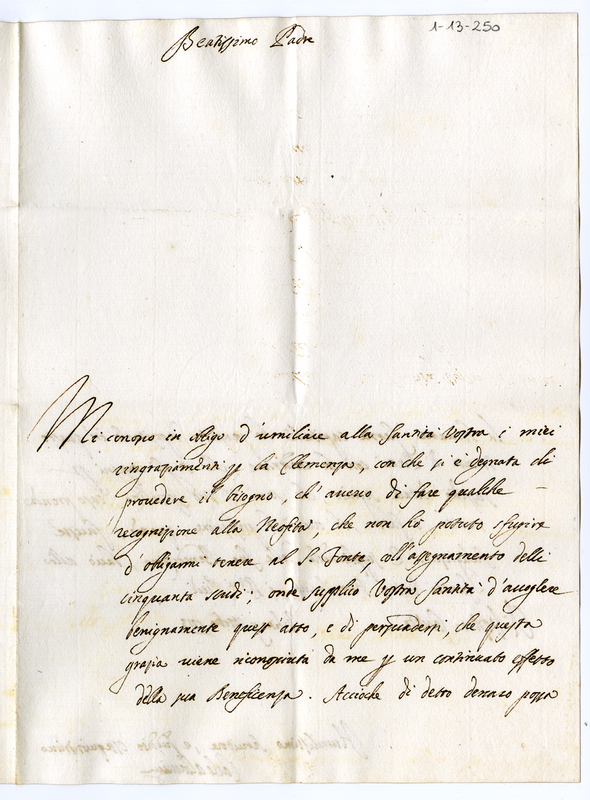 1-13-250
Beatissimo Padre
Mi conosco in obligo d'umiliare alla Santità Vostra i miei
ringraziamenti p la Clemenza, con che si è degnata di
provedere il bisogno, ch'avevo di fare qualche
recognizione alla Neofita, che non hò potuto sfugire
d'obligarmi tenere al S. Fonte, coll'assegnamento delli
cinquanta scudi; onde supplico Vostra Santità d'accogliere
benignamente quest'atto, e di persuadersi, che questa
grazia viene riconosciuta da me p un continuato effetto
della sua Beneficenza. Acciochè di detto denaro possa